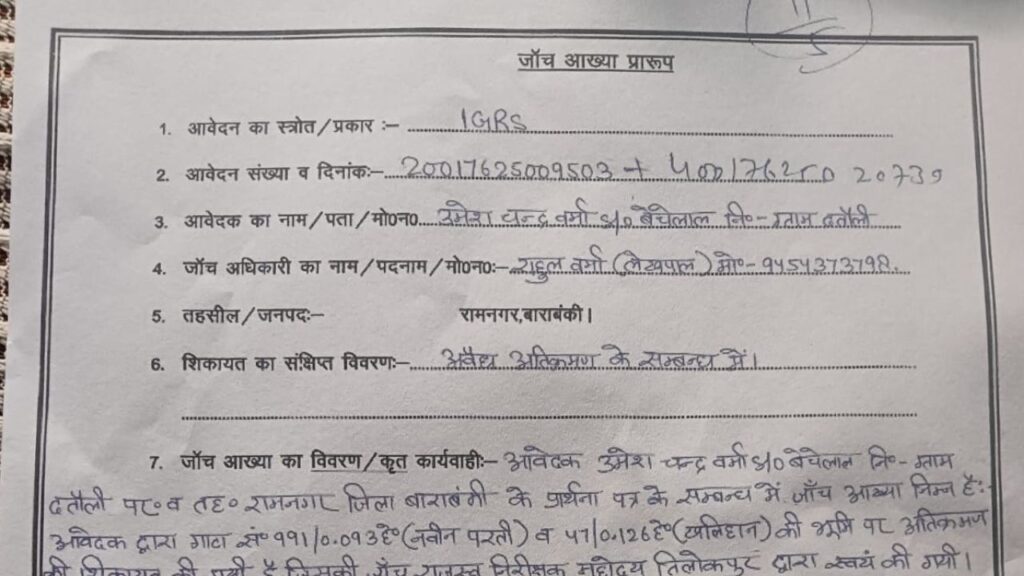 जॉच आख्या प्रारूप
1. आवेदन का स्त्रोत/प्रकार :- IGRS
2. आवेदन संख्या व दिनांक:- 20017625009503 + 40017625020739
3. आवेदक का नाम/पता/मो0न0 उमेश चन्द्र वर्मा S/o बेचेलाल नि०- ग्राम दतौली
4. जॉच अधिकारी का नाम/पदनाम/मो0न0:- राहुल वर्मा (लेखपाल) मो०- 9454373798
5. तहसील/जनपद:- रामनगर,बाराबंकी।
6. शिकायत का संक्षिप्त विवरण:- अवैध अतिक्रमण के सम्बन्ध में।
7. जॉच आख्या का विवरण/कृत कार्यवाही:- आवेदक उमेश चन्द्र वर्मा S/o बेचेलाल नि०- ग्राम
दतौली पर० व तह० रामनगर जिला बाराबंकी के प्रार्थना पत्र के सम्बन्ध में जाँच आख्या निम्न है:-
आवेदक द्वारा गाटा सं० 991/0.093हे० (नवीन परती) व 47/0.126हे० (खलिहान) की भूमि पर अतिक्रमण
की शिकायत की गयी है जिसकी जाँच राजस्व निरीक्षक महोदय तिलोकपुर द्वारा स्वयं की गयी।